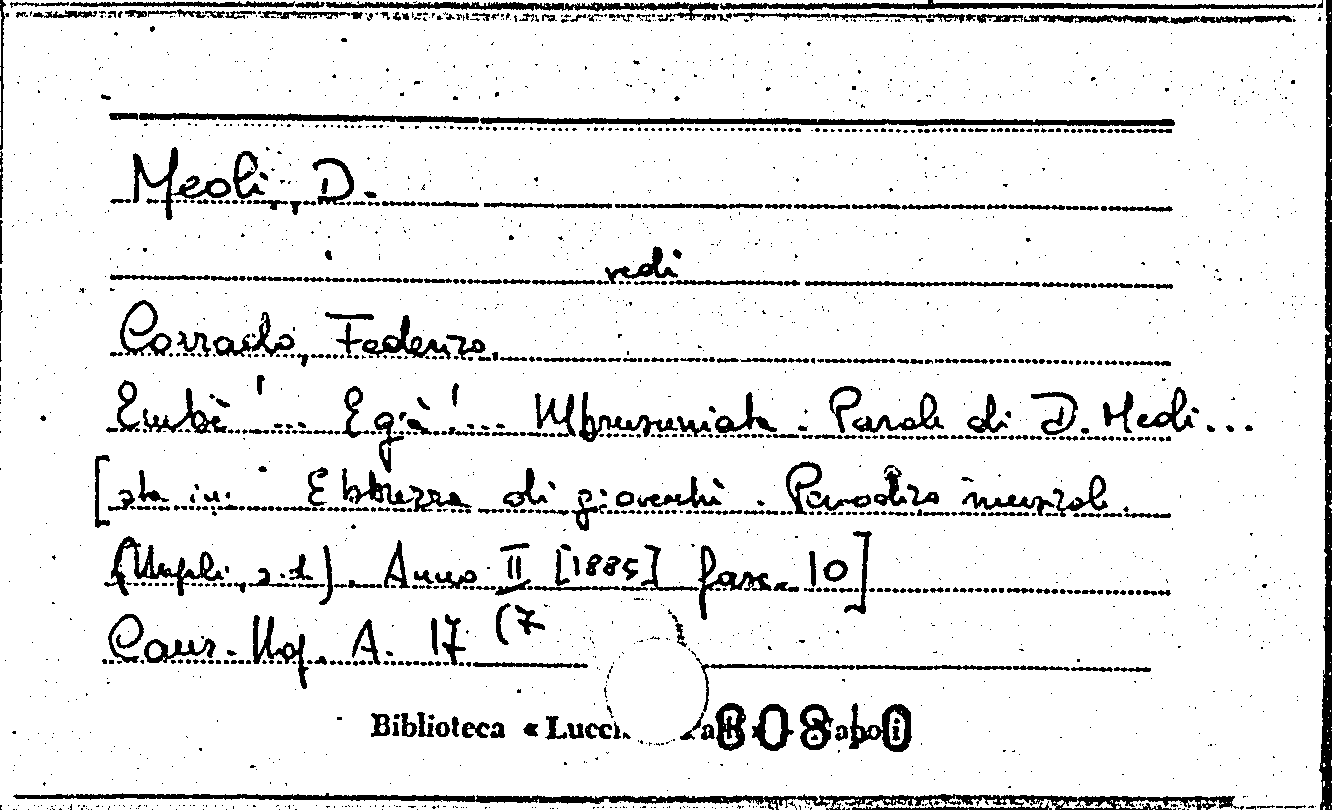 Meoli, D.
vedi
Corrado, Federico.
Embè!... E già!... Mbrusuniata. Parole di D. Meoli...
[sta in: Ebbrezza di giovecchi. Periodico musicale.
(Napoli, s.d.). Anno II [1885] fasc. 10]
Canz. Nap. A. 17 (7
Biblioteca « Lucc 8080